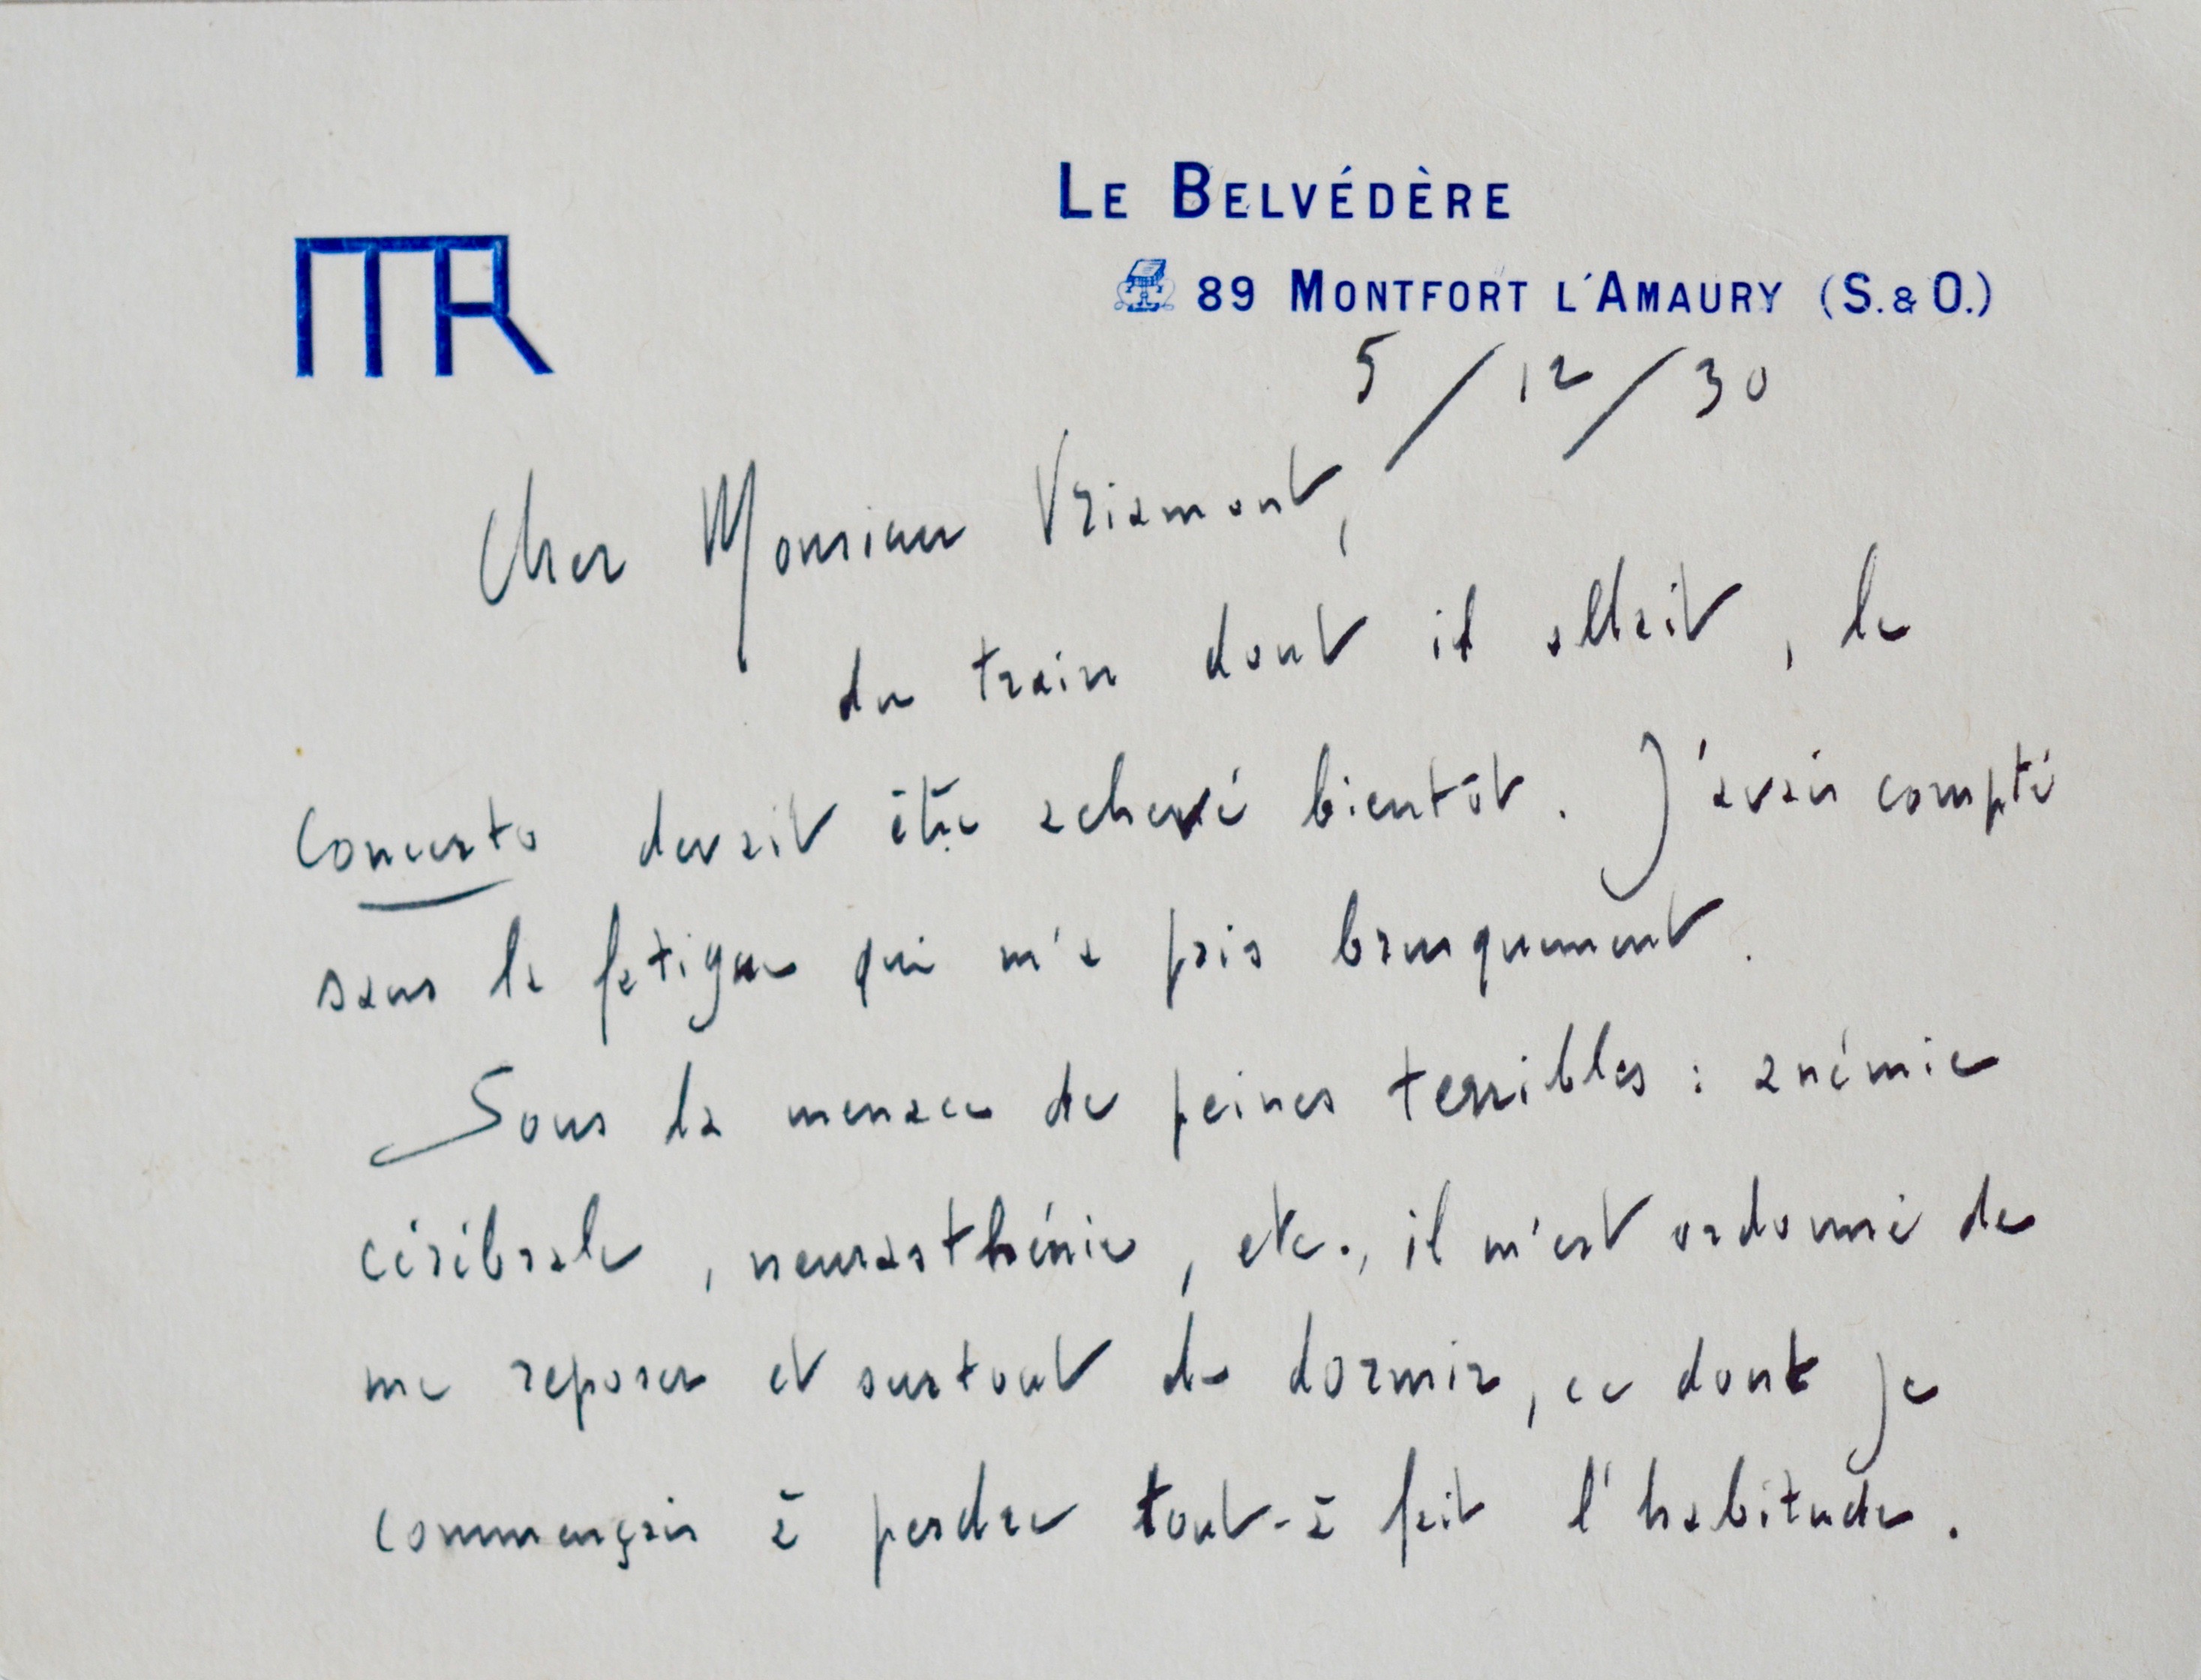 MR
LE BELVÉDÈRE
89 MONTFORT L'AMAURY (S. & O.)
5/12/30
Cher Monsieur Vriamont,
du train dont il allait, le
Concerto devait être achevé bientôt. J'avais compté
sans la fatigue qui m'a pris brusquement.
Sous la menace de peines terribles : anémie
cérébrale, neurasthénie, etc., il m'est ordonné de
me reposer et surtout de dormir, ce dont je
commençais à perdre tout-à fait l'habitude.